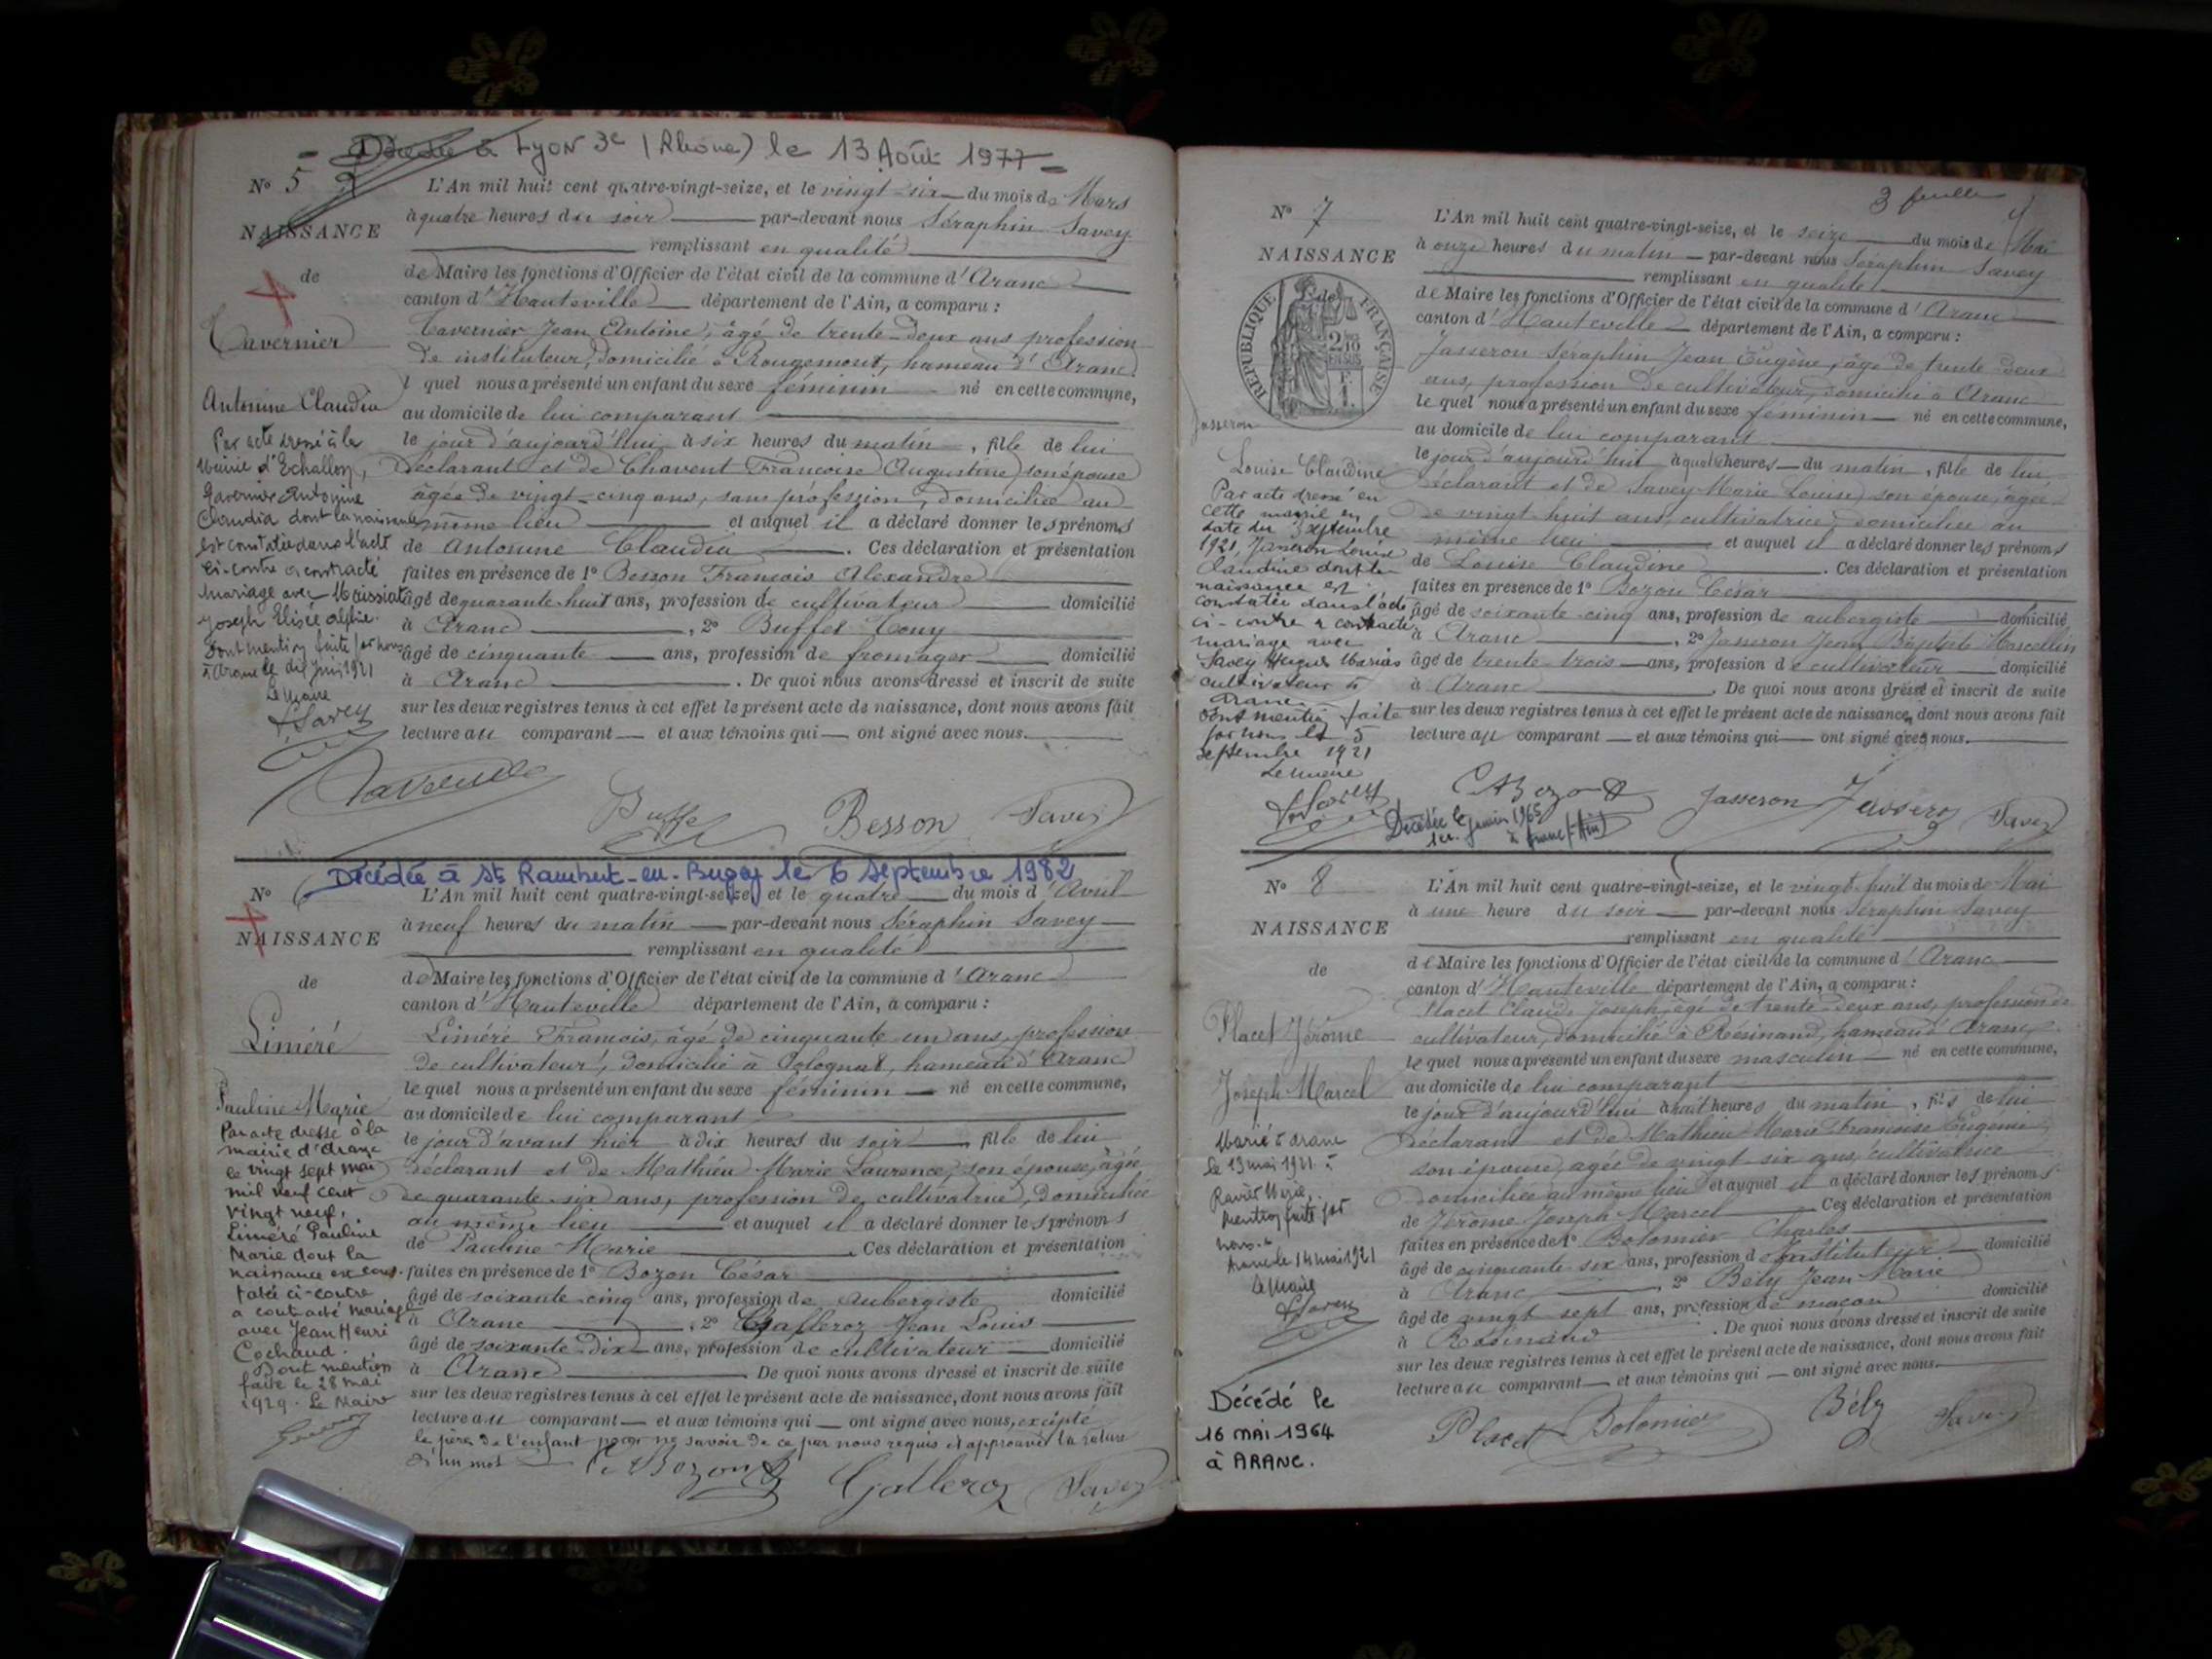 Décédée à Lyon 3e (Rhône) le 13 Août 1977
No 5
NAISSANCE
de
Tavernier
Antonine Claudia
Par acte dressé à la
Mairie d'Echallon,
Tavernier Antonine
Claudia dont la naissance
est constatée dans l'acte
ci-contre a contracté
mariage avec Moissiat
Joseph Elisée
Dont mention faite par nous
à Aranc le dix Juin 1921
Le Maire
Savey
L'An mil huit cent quatre-vingt-seize, et le vingt-six du mois de Mars
à quatre heures du soir par-devant nous Séraphin Savey
remplissant en qualité
de Maire les fonctions d'Officier de l'état civil de la commune d'Aranc
canton d'Hauteville département de l'Ain, a comparu :
Tavernier Jean Antoine, âgé de trente-deux ans profession
de instituteur, domicilié à Rougemont, hameau d'Aranc.
l quel nous a présenté un enfant du sexe féminin né en cette commune,
au domicile de lui comparant
le jour d'aujourd'hui à six heures du matin, fille de lui
Déclarant et de Chavent Françoise Augustine son épouse
âgée de vingt-cinq ans, sans profession, domiciliée au
même lieu et auquel il a déclaré donner les prénoms
de Antonine Claudia. Ces déclaration et présentation
faites en présence de 1o Besson François Alexandre
âgé de quarante huit ans, profession de cultivateur domicilié
à Aranc, 2o Buffet Tony
âgé de cinquante ans, profession de fromager domicilié
à Aranc. De quoi nous avons dressé et inscrit de suite
sur les deux registres tenus à cet effet le présent acte de naissance, dont nous avons fait
lecture au comparant et aux témoins qui ont signé avec nous.
Tavernier Buffet Besson Savey
Décédée à St Rambert-en-Bugey le 6 Septembre 1982
No 6
NAISSANCE
de
Liméré
Pauline Marie
Par acte dressé à la
mairie d'Aranc
le vingt sept mai
mil neuf cent
vingt neuf,
Liméré Pauline
Marie dont la
naissance est cons-
tatée ci-contre
a contracté mariage
avec Jean Henri
Cochaud.
Dont mention
faite le 28 mai
1929. Le Maire
L'An mil huit cent quatre-vingt-seize, et le quatre du mois d'Avril
à neuf heures du matin par-devant nous Séraphin Savey
remplissant en qualité
de Maire les fonctions d'Officier de l'état civil de la commune d'Aranc
canton d'Hauteville département de l'Ain, a comparu :
Liméré François, âgé de cinquante un ans, profession
de cultivateur, domicilié à Colognat, hameau d'Aranc
le quel nous a présenté un enfant du sexe féminin né en cette commune,
au domicile de lui comparant
le jour d'avant hier à dix heures du soir, fille de lui
déclarant et de Mathieu Marie Laurence, son épouse, âgée
de quarante-six ans, profession de cultivatrice, domiciliée
au même lieu et auquel il a déclaré donner les prénoms
de Pauline Marie. Ces déclaration et présentation
faites en présence de 1o Bozon César
âgé de soixante-cinq ans, profession de aubergiste domicilié
à Aranc, 2o Galleroz Jean Louis
âgé de soixante-dix ans, profession de cultivateur domicilié
à Aranc. De quoi nous avons dressé et inscrit de suite
sur les deux registres tenus à cet effet le présent acte de naissance, dont nous avons fait
lecture au comparant et aux témoins qui ont signé avec nous, excepté
le père de l'enfant pour ne savoir de ce par nous requis et approuvé la rature
d'un mot
C. Bozon Galleroz Savey
3 feuille
No 7
NAISSANCE
de
RÉPUBLIQUE FRANÇAISE
2/10 EN SUS
Jasseron
Louise Claudine
Par acte dressé en
cette mairie en
date du 3 septembre
1921, Jasseron Louise
Claudine dont la
naissance est
constatée dans l'acte
ci-contre a contracté
mariage avec
Savey Hugues Marius
cultivateur à
Aranc.
Dont mention faite
par nous le 5
septembre 1921
Le Maire
Savey
L'An mil huit cent quatre-vingt-seize, et le seize du mois de Mai
à onze heures du matin par-devant nous Séraphin Savey
remplissant en qualité
de Maire les fonctions d'Officier de l'état civil de la commune d'Aranc
canton d'Hauteville département de l'Ain, a comparu :
Jasseron Séraphin Jean Eugène, âgé de trente-deux
ans, profession de cultivateur, domicilié à Aranc
le quel nous a présenté un enfant du sexe féminin né en cette commune,
au domicile de lui comparant
le jour d'aujourd'hui à quatre heures du matin, fille de lui
déclarant et de Savey Marie Louise son épouse, âgée
de vingt-huit ans, cultivatrice, domiciliée au
même lieu et auquel il a déclaré donner les prénoms
de Louise Claudine. Ces déclaration et présentation
faites en présence de 1o Bozon César
âgé de soixante-cinq ans, profession de aubergiste domicilié
à Aranc, 2o Jasseron Jean Baptiste Marcellin
âgé de trente-trois ans, profession de cultivateur domicilié
à Aranc. De quoi nous avons dressé et inscrit de suite
sur les deux registres tenus à cet effet le présent acte de naissance, dont nous avons fait
lecture au comparant et aux témoins qui ont signé avec nous.
C. Bozon Jasseron Jasseron Savey
Décédée le
1er janvier 1965
à Aranc (Ain)
No 8
NAISSANCE
de
Placet Jérôme
Joseph Marcel
Marié à Aranc
le 13 mai 1921 à
Ravier Marie,
Mention faite par
nous à
Aranc le 14 mai 1921
Le Maire
Savey
Décédé le
16 MAI 1964
à ARANC.
L'An mil huit cent quatre-vingt-seize, et le vingt-huit du mois de Mai
à une heure du soir par-devant nous Séraphin Savey
remplissant en qualité
de Maire les fonctions d'Officier de l'état civil de la commune d'Aranc
canton d'Hauteville département de l'Ain, a comparu :
Placet Claude Joseph, âgé de trente-deux ans, profession de
cultivateur, domicilié à Résinand, hameau d'Aranc
le quel nous a présenté un enfant du sexe masculin né en cette commune,
au domicile de lui comparant
le jour d'aujourd'hui à huit heures du matin, fils de lui
déclarant et de Mathieu Marie Françoise Eugénie
son épouse, agée de vingt-six ans, cultivatrice
domiciliée au même lieu et auquel il a déclaré donner les prénoms
de Jérôme Joseph Marcel. Ces déclaration et présentation
faites en présence de 1o Bolomier Charles
âgé de cinquante-six ans, profession d'instituteur domicilié
à Aranc, 2o Bély Jean Marie
âgé de vingt-sept ans, profession de maçon domicilié
à Résinand. De quoi nous avons dressé et inscrit de suite
sur les deux registres tenus à cet effet le présent acte de naissance, dont nous avons fait
lecture au comparant et aux témoins qui ont signé avec nous.
Placet Bolomier Bély Savey